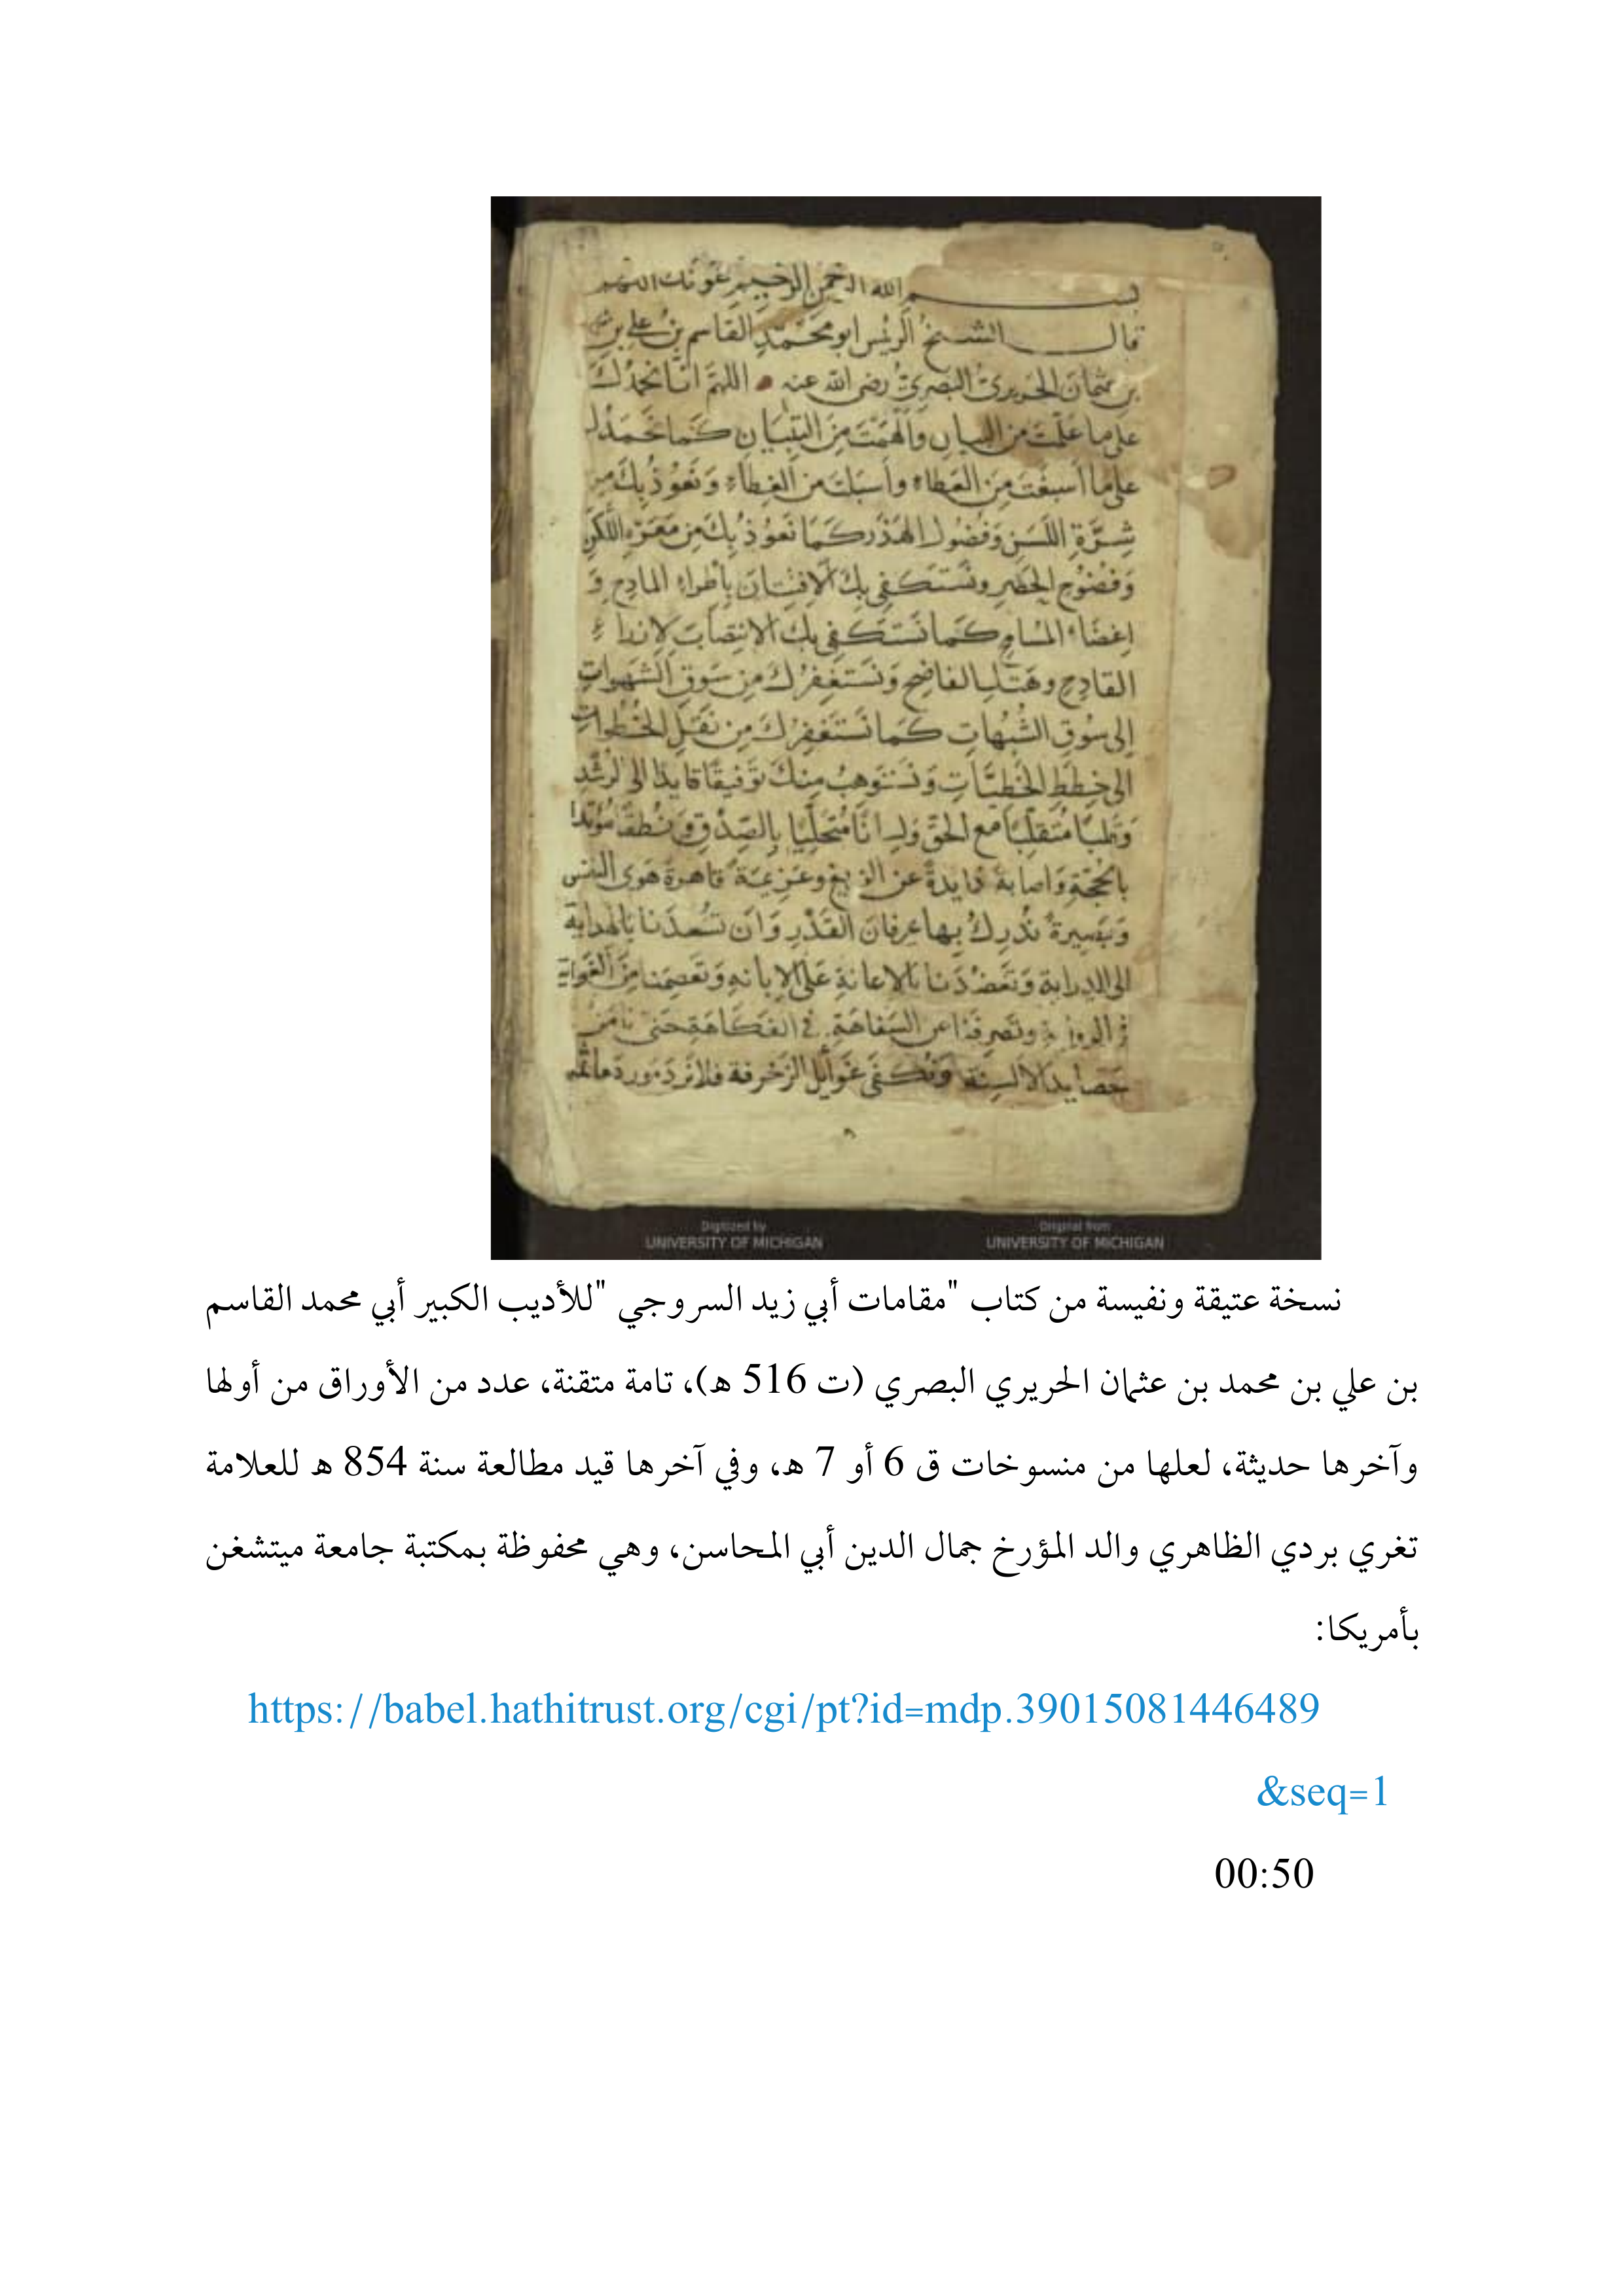 بسم الله الرحمن الرحيم عونك اللهم
قال الشيخ الرئيس ابو محمد القاسم بن علي بن
بن عثمان الحريري البصري رضى الله عنه اللهم انا نحمدك
على ما علمت من البيان وألهمت من التبيان كما نحمدك
على ما أسبغت من العطاء وأسبلت من الغطاء ونعوذ بك من
شرة اللسن وفضول الهذر كما نعوذ بك من معرة اللكن
وفضوح الحصر ونستكفي بك الافتتان بإطراء المادح و
إغضاء المسامح كما نستكفي بك الانتصاب لازراء
القادح وهتك الفاضح ونستغفرك من سوق الشهوات
إلى سوق الشبهات كما نستغفرك من نقل الخطوات
الى خطط الخطيات ونستوهب منك توفيقا قايدا الى الرشد
وقلبا متقلبا مع الحق ولسانا متحليا بالصدق ونطقا مؤيدا
بالحجة واصابة ذايدة عن الزيغ وعزيمة قاهرة هوى النفس
وبصيرة ندرك بها عرفان القدر وان تسعدنا بالهداية
الى الدراية وتعضدنا بالاعانة على الابانة وتعصمنا من الغواية
في الرواية وتصرفنا عن السفاهة في الفكاهة حتى نامن
حصايد الالسنة ونكفى غوايل الزخرفة فلا نرد مورد مأثمة
Digitized by
UNIVERSITY OF MICHIGAN
Original from
UNIVERSITY OF MICHIGAN
نسخة عتيقة ونفيسة من كتاب "مقامات أبي زيد السروجي "للأديب الكبير أبي محمد القاسم
بن علي بن محمد بن عثمان الحريري البصري (ت 516 هـ)، تامة متقنة، عدد من الأوراق من أولها
وآخرها حديثة، لعلها من منسوخات ق 6 أو 7 هـ، وفي آخرها قيد مطالعة سنة 854 هـ للعلامة
تغري بردي الظاهري والد المؤرخ جمال الدين أبي المحاسن، وهي محفوظة بمكتبة جامعة ميتشغن
بأمريكا:
https://babel.hathitrust.org/cgi/pt?id=mdp.39015081446489
&seq=1
00:50